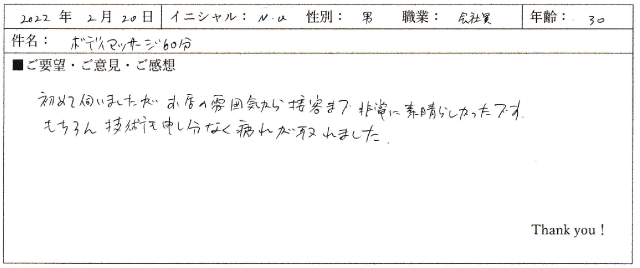 2022 年 2 月 20 日 イニシャル： N.U 性別： 男 職業： 会社員 年齢： 30
件名： ボディマッサージ60分
■ご要望・ご意見・ご感想
初めて伺いましたが お店の雰囲気から接客まで 非常に素晴らしかったです。
もちろん 技術も申し分なく疲れが取れました。
Thank you！